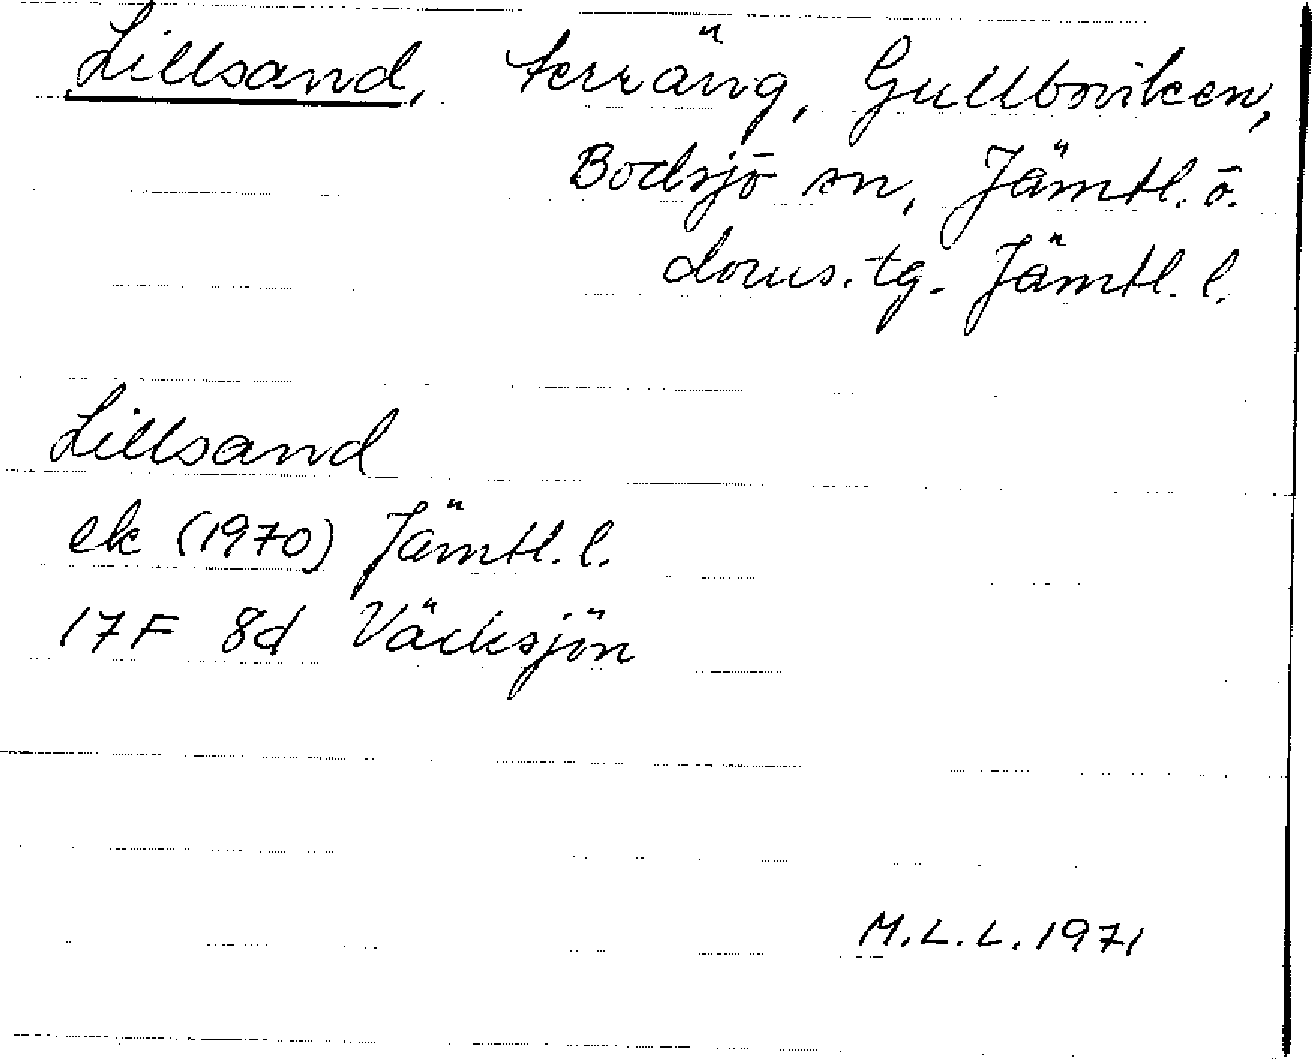 Lillsand, terräng, Gullboviken,
Bodsjö sn, Jämtl. ö.
doms. tg. Jämtl. l.
Lillsand
ek (1970) Jämtl. l.
17F 8d Väcksjön
M.L.L. 1971